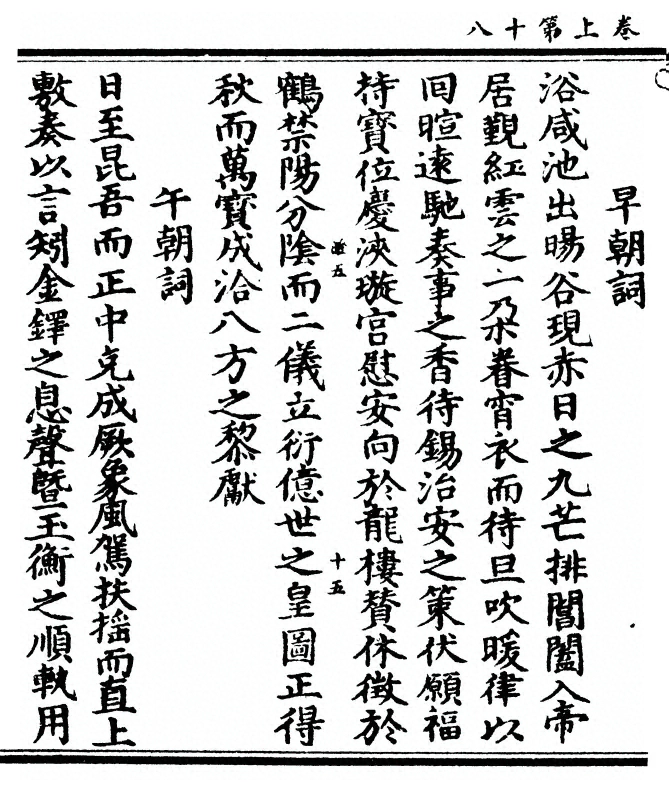 卷上第十八
早朝詞
浴咸池出暘谷現赤日之九芒排閶闔入帝
居覲紅雲之一朶眷宵衣而待旦吹暖律以
回暄遠馳奏事之香待錫治安之策伏願福
持寶位慶浹璇宮慰安向於龍樓賛休徵於
鶴禁陽分陰而二儀立衍億世之皇圖正得
秋而萬寶成洽八方之黎獻
午朝詞
日至昆吾而正中克成厥象風駕扶摇而直上
敷奏以言矧金鐸之息聲暨玉衡之順軌用
五
十五